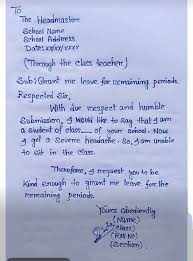 To
The Headmaster
School Name
School Address
Date: xx/xx/xxxx
(Through the class teacher)
Sub: Grant me leave for remaining periods.
Respected Sir,
With due respect and humble
Submission, I would like to say that I am
a student of class__ of your school. Now
I get a severe headache. So, I am unable
to sit in the class.
Therefore, I request you to be
kind enough to grant me leave for the
remaining periods.
Yours Obediently
(Name)
(Class)
(Roll No)
(Section)